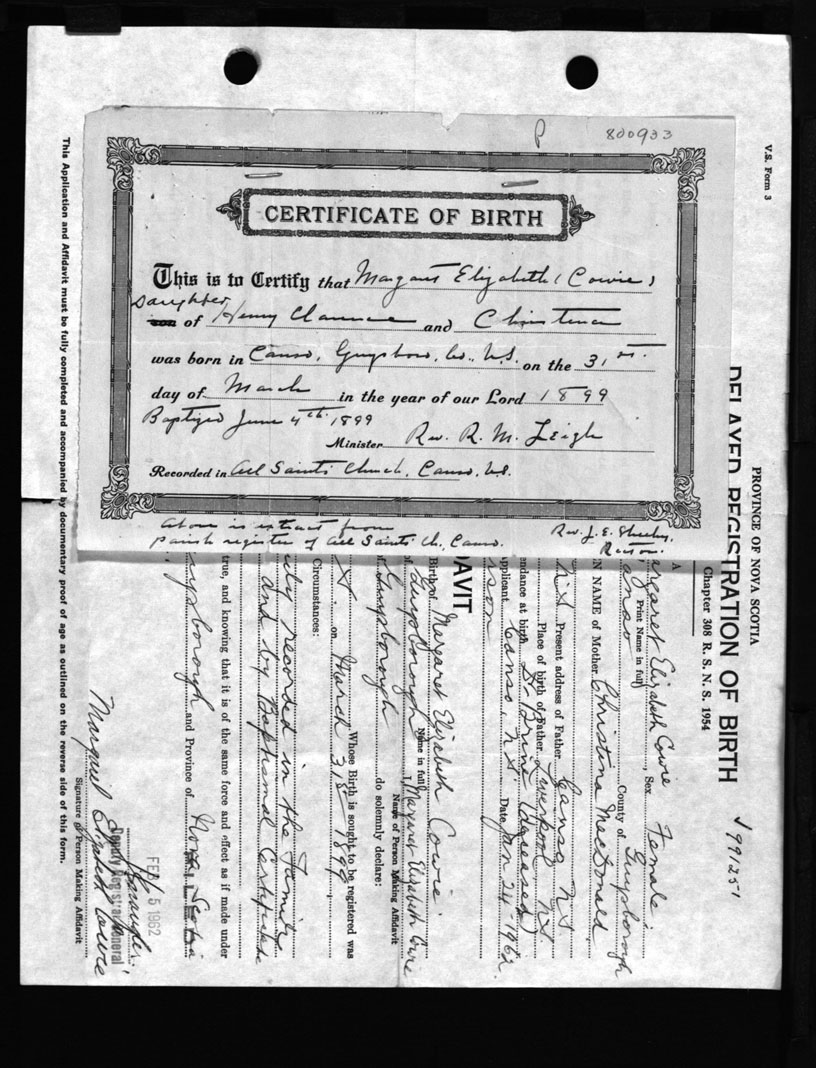 800933
CERTIFICATE OF BIRTH
This is to Certify that Margaret Elizabeth (Cowie)
daughter
son of Henry Clarence and Christena
was born in Canso, Guysboro. Co., N.S. on the 31st.
day of March in the year of our Lord 1899
Baptized June 4th. 1899
Minister Rev. R. M. Leigh
Recorded in All Saints Church, Canso, N.S.
Above is extract from
parish register of All Saints Ch., Canso.
Rev. J. E.
Rector.
V.S. Form 3
PROVINCE OF NOVA SCOTIA
DELAYED REGISTRATION OF BIRTH
Chapter 308 R. S. N. S. 1954
argaret Elizabeth Cowie, Sex Female
Print Name in full
anso County of Guysborough
N NAME of Mother Christina MacDonald
N.S. Present address of Father Canso N.S.
Place of birth of Father Liverpool N.S.
endance at birth Dr. Brine (deceased)
pplicant Canso, N.S. Date Jan 24 - 1962
AVIT
Birth of Margaret Elizabeth Cowie
Name in full
of Guysborough I, Margaret Elizabeth Cowie
Name of Person Making Affidavit
of Guysborough do solemnly declare:
Whose Birth is sought to be registered was
on March 31st 1899
Circumstances:
recorded in the Family
and by Baptismal Certificate
true, and knowing that it is of the same force and effect as if made under
uysborough and Province of Nova Scotia
FEB 5 1962
Deputy Registrar General
Margaret Elizabeth Cowie
Signature of Person Making Affidavit
This Application and Affidavit must be fully completed and accompanied by documentary proof of age as outlined on the reverse side of this form.